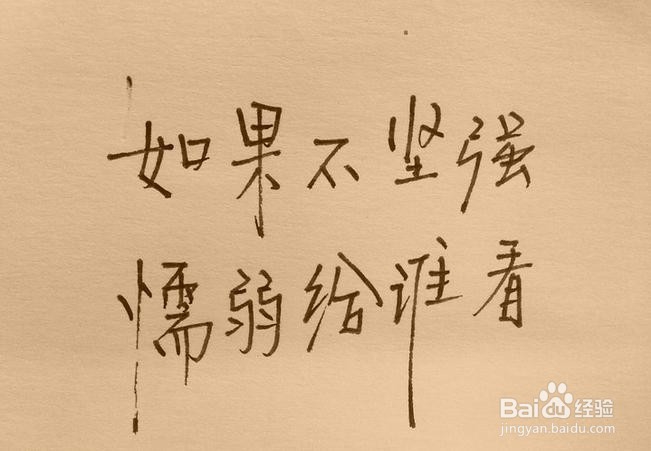 如果不坚强
懦弱给谁看
Baidu经验
jingyan.baidu.com